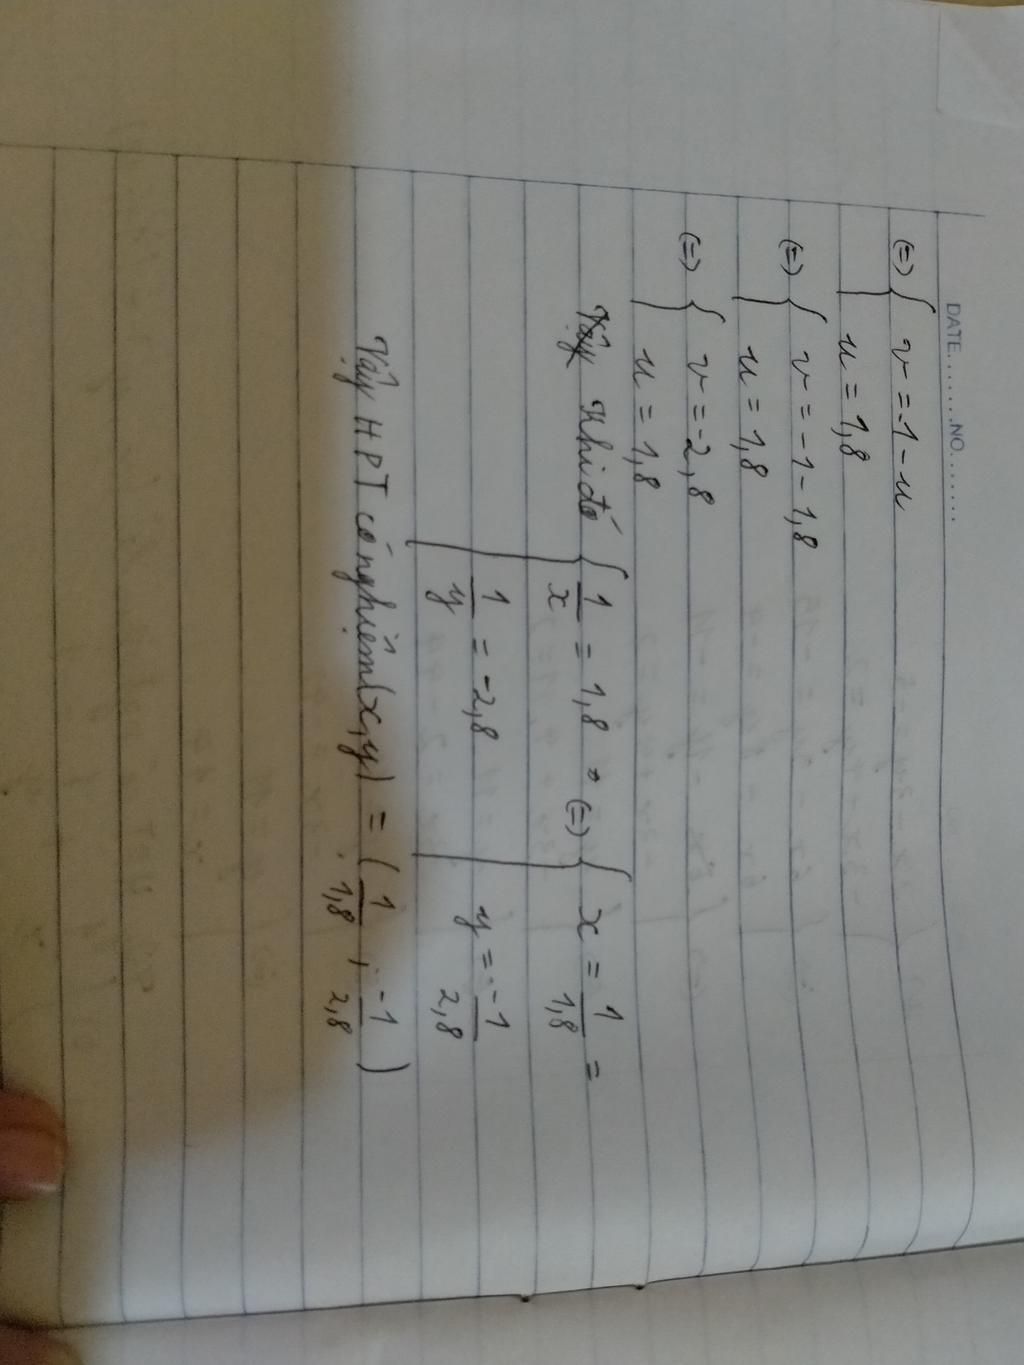 DATE.......NO.......
(=) { v = -1 - u
u = 1,8
(=) { v = -1 - 1,8
u = 1,8
(=) { v = -2,8
u = 1,8
Vậy Khi đó { 1/x = 1,8 (=) { x = 1/1,8 =
1/y = -2,8 y = -1/2,8
Vậy HPT có nghiệm (x,y) = (1/1,8 ; -1/2,8)